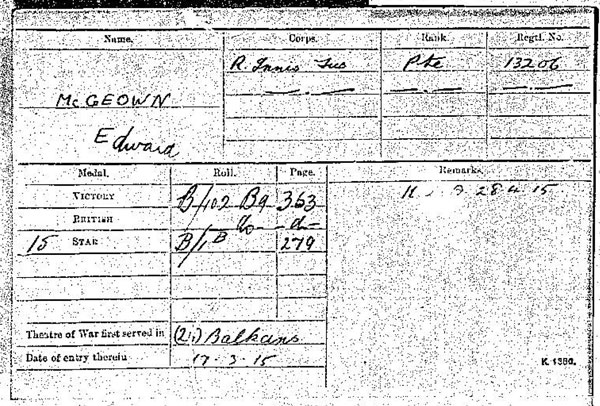 Name. Corps. Rank. Regtl. No.
R. Innis Fus Pte 13206
McGEOWN
Edward
Medal. Roll. Page. Remarks.
VICTORY B/102 B9 363 28.4.15
BRITISH do do
15 STAR B/1 B 279
Theatre of War first served in (2b) Balkans
Date of entry therein 17-3-15
K. 1380.